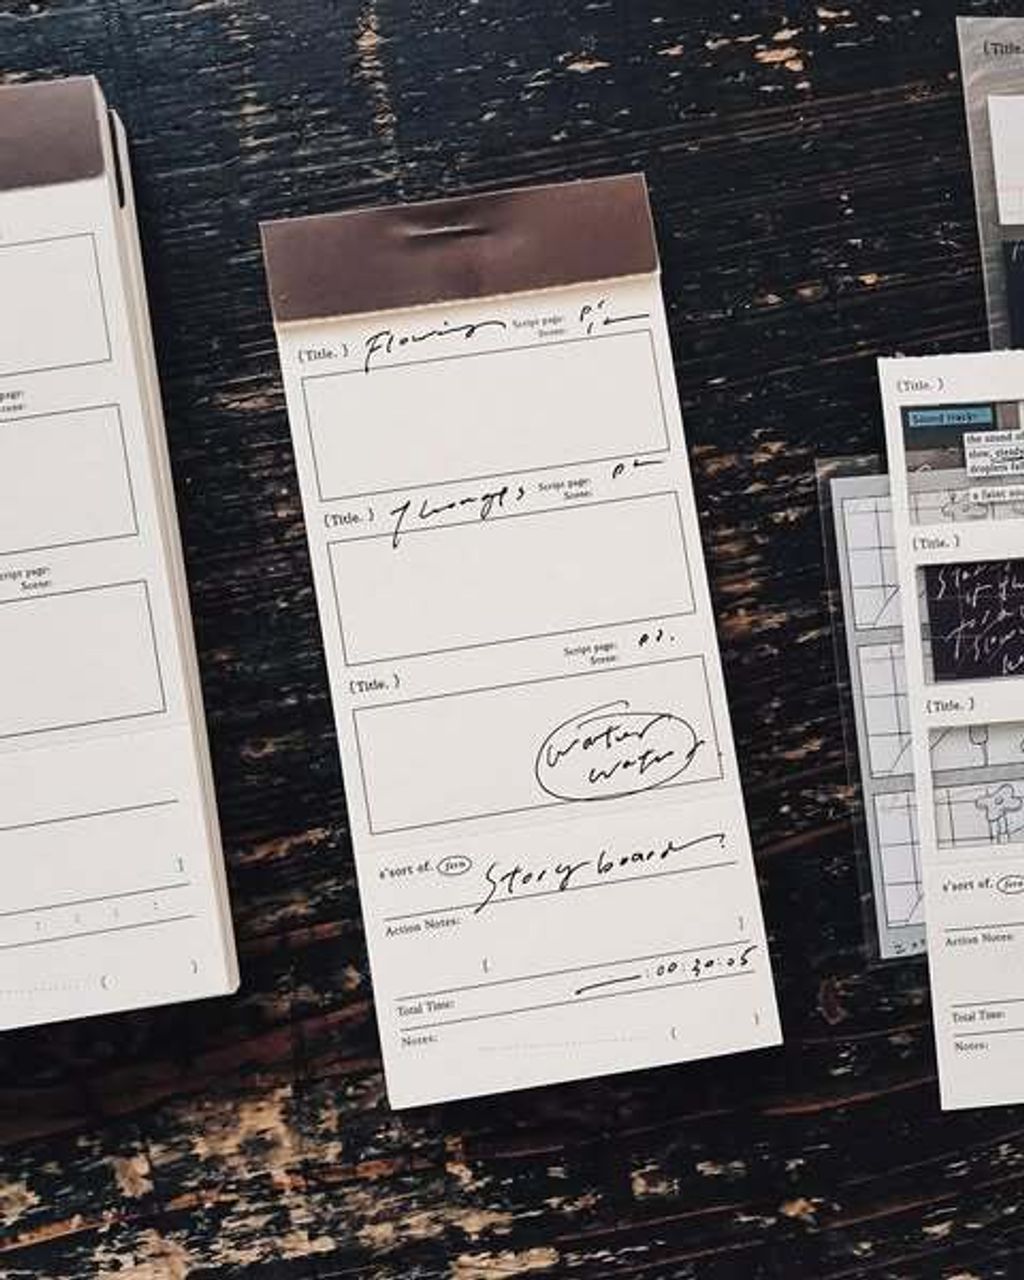 page:
Scene:
Script page:
Scene:
]
( )
(Title. ) Flowing Script page: p.
Scene:
(Title. ) Thoughts Script page: p
Scene:
(Title. ) Script page: p3.
Scene:
water
water
s'sort of. fern Story board
Action Notes:
( ]
Total Time: :00:30:05
Notes: ( )
(Title.
(Title. )
Sound track
the sound of
slow, steady
droplets fall
a faint
(Title. )
(Title. )
s'sort of.
Action Notes:
Total Time:
Notes: